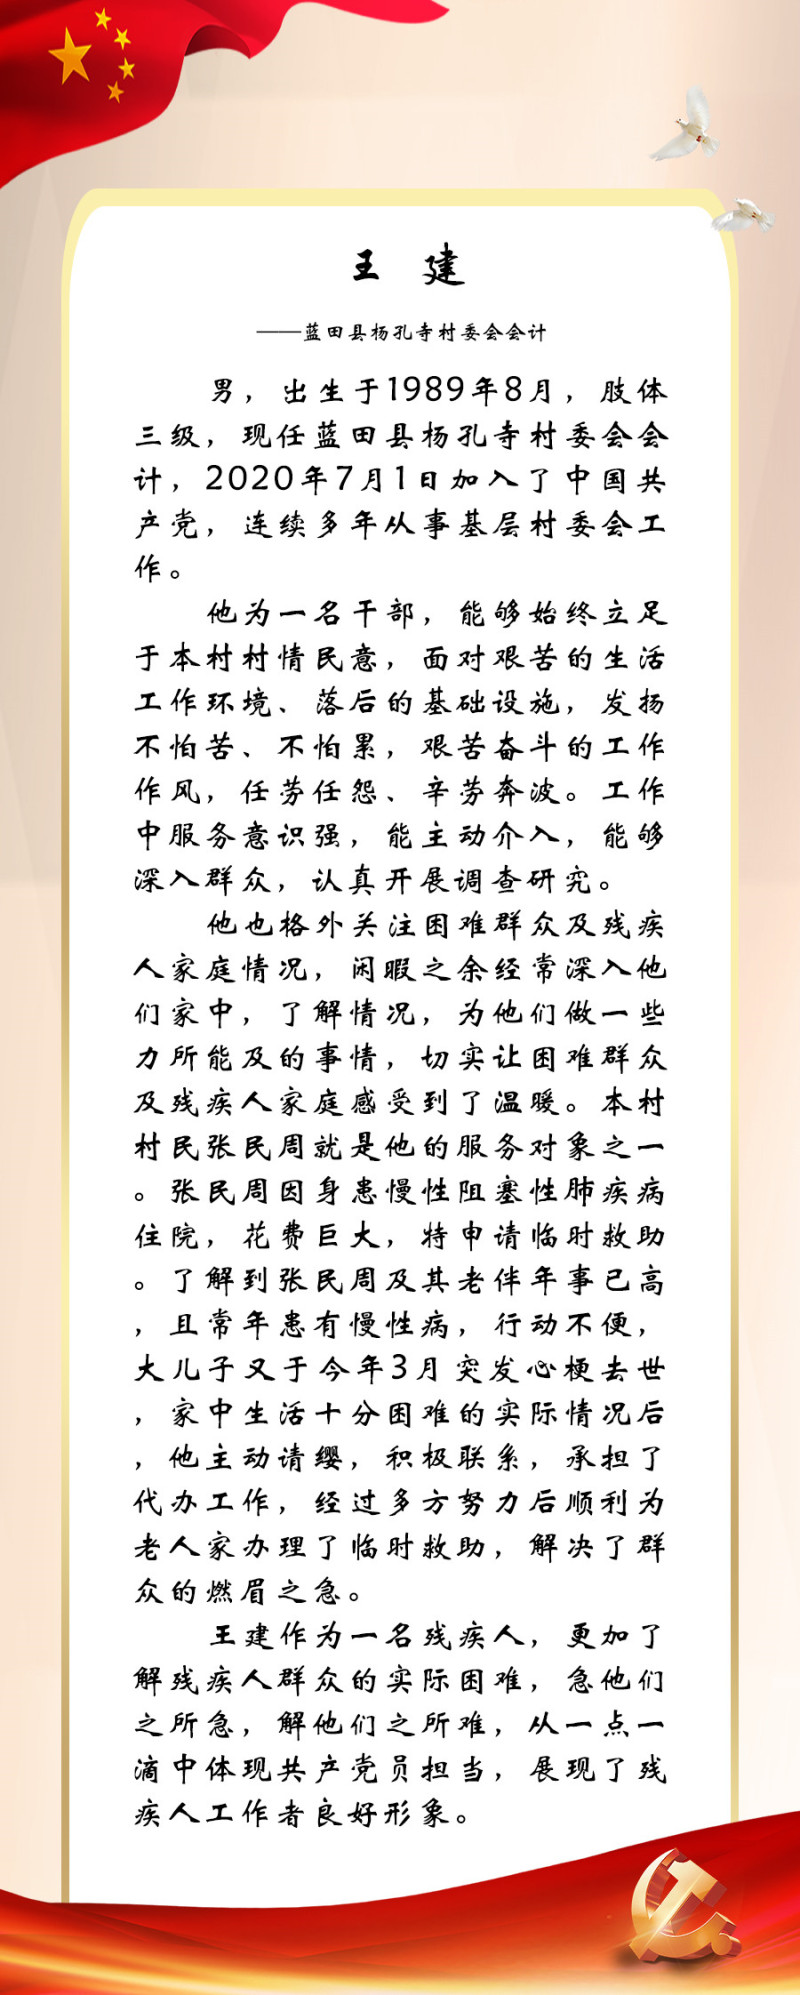 王 建
——蓝田县杨孔寺村委会会计
男，出生于1989年8月，肢体
三级，现任蓝田县杨孔寺村委会会
计，2020年7月1日加入了中国共
产党，连续多年从事基层村委会工
作。
他为一名干部，能够始终立足
于本村村情民意，面对艰苦的生活
工作环境、落后的基础设施，发扬
不怕苦、不怕累，艰苦奋斗的工作
作风，任劳任怨、辛劳奔波。工作
中服务意识强，能主动介入，能够
深入群众，认真开展调查研究。
他也格外关注困难群众及残疾
人家庭情况，闲暇之余经常深入他
们家中，了解情况，为他们做一些
力所能及的事情，切实让困难群众
及残疾人家庭感受到了温暖。本村
村民张民周就是他的服务对象之一
。张民周因身患慢性阻塞性肺疾病
住院，花费巨大，特申请临时救助
。了解到张民周及其老伴年事已高
，且常年患有慢性病，行动不便，
大儿子又于今年3月突发心梗去世
，家中生活十分困难的实际情况后
，他主动请缨，积极联系，承担了
代办工作，经过多方努力后顺利为
老人家办理了临时救助，解决了群
众的燃眉之急。
王建作为一名残疾人，更加了
解残疾人群众的实际困难，急他们
之所急，解他们之所难，从一点一
滴中体现共产党员担当，展现了残
疾人工作者良好形象。